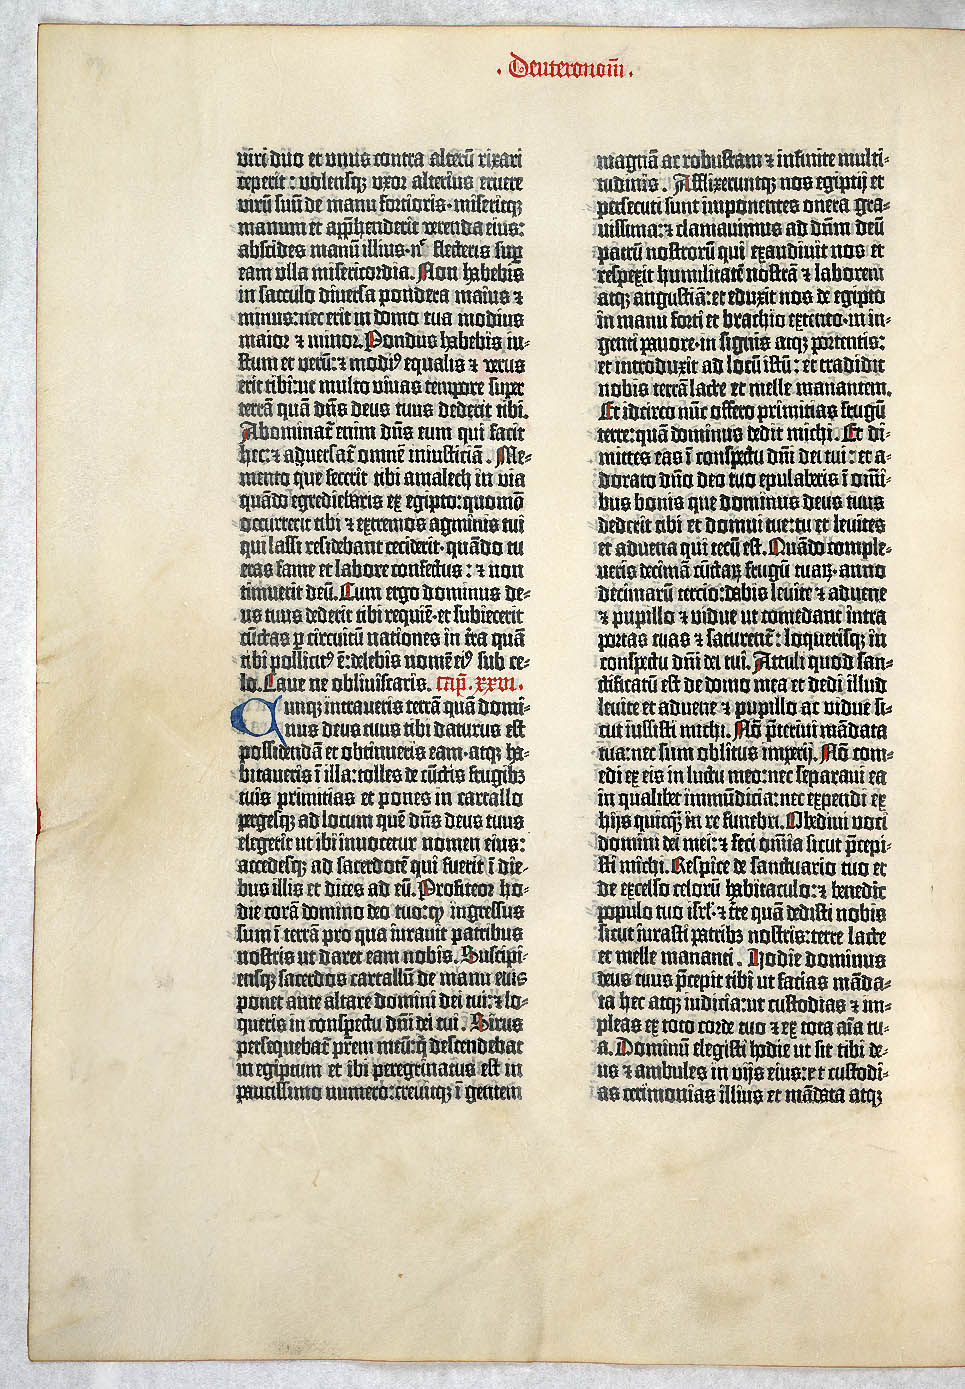 · Deuteronoм̄ ·
viri duo et unus contra alterū rixari
ceperit : volensq; uxor alterius eruere
virū suū de manu fortioris · miseritq;
manum et apprehenderit verenda eius:
abscides manū illius · nec flecteris sup̄
eam ulla misericordia. Non habebis
in sacculo diversa pondera maius ⁊
minus: nec erit in domo tua modius
maior ⁊ minor. Pondus habebis iu-
stum et verū: ⁊ modiꝰ equalis ⁊ verus
erit tibi: ut multo vivas tempore super
terrā quā dn̄s deus tuus dederit tibi.
Abominat̄ enim dn̄s eum qui facit
hec: ⁊ adversat̄ omnē iniusticiā. Me-
mento que fecerit tibi amalech in via
quādo egrediebaris ex egipto: quomō
occurrerit tibi ⁊ extremos agminis tui
qui lassi residebant ceciderit · quādo tu
eras fame et labore confectus: ⁊ non
timuerit deū. Cum ergo dominus de-
us tuus dederit tibi requiē · et subiecerit
cūctas ꝑ circuitū nationes in t̄ra quā
tibi pollicitꝰ ē: delebis nomē eiꝰ sub ce-
lo. Cave ne obliviscaris. Cap̄. XXVI.
Cunq; intraveris terrā quā domi-
nus deus tuus tibi daturus est
possidendā et obtinueris eam · atq; ha-
bitaveris ī illa: tolles de cūctis frugibꝫ
tuis primitias et pones in cartallo
pergesq; ad locum quē dn̄s deus tuus
elegerit ut ibi invocetur nomen eius:
accedesq; ad sacerdotē qui fuerit ī die-
bus illis et dices ad eū. Profiteor ho-
die corā domino deo tuo: ꝙ ingressus
sum ī terrā pro qua iuravit patribus
nostris ut daret eam nobis. Suscipi-
ensq; sacerdos cartallū de manu eius
ponet ante altare domini dei tui: ⁊ lo-
queris in conspectu dn̄i dei tui. Sirus
persequebat̄ pr̄em meū: q̄ descendebat
in egiptum et ibi peregrinatus est in
paucissimo numero: crevitq; ī gentem
magnā ac robustam ⁊ infinite multi-
tudinis. Afflixeruntq; nos egiptij et
persecuti sunt imponentes onera gra-
vissima: ⁊ clamavimus ad dn̄m deū
patrū nostrorū qui exaudivit nos et
respexit humilitatē nostrā ⁊ laborem
atq; angustiā: et eduxit nos de egipto
in manu forti et brachio extento · in in-
genti pavore · in signis atq; portentis:
et introduxit ad locū istū: et tradidit
nobis terrā lacte et melle manantem.
Et idcirco nūc offero primitias frugū
terre: quā dominus dedit michi. Et di-
mittes eas ī conspectu dn̄i dei tui: et a-
dorato dn̄o deo tuo epulaberis ī omī-
bus bonis que dominus deus tuus
dederit tibi et domui tue: tu et levites
et advena qui tecū est. Quādo comple-
veris decimā cūctaꝝ frugū tuaꝝ · anno
decimarū tercio: dabis levite ⁊ advene
⁊ pupillo ⁊ vidue ut comedant intra
portas tuas ⁊ saturent̄: loquerisq; in
conspectu dn̄i dei tui. Attuli quod san-
ctificatū est de domo mea et dedi illud
levite et advene ⁊ pupillo ac vidue si-
cut iussisti michi. Nō p̄terivi mādata
tua: nec sum oblitus imperij. Nō com-
edi ex eis in luctu meo: nec separavi ea
in qualibet immūdicia: nec expendi ex
hijs quicq̄ in re funebri. Obedivi voci
domini dei mei: ⁊ feci om̄ia sicut p̄cepi-
sti michi. Respice de sanctuario tuo et
de excelso celorū habitaculo: ⁊ benedic
populo tuo isrl̄ · ⁊ t̄re quā dedisti nobis
sicut iurasti patribꝫ nostris: terre lacte
et melle mananti. Hodie dominus
deus tuus p̄cepit tibi ut facias māda-
ta hec atq; iudicia: ut custodias ⁊ im-
pleas ex toto corde tuo ⁊ ex tota aīa tu-
a. Dominū elegisti hodie ut sit tibi de-
us ⁊ ambules in vijs eius: et custodi-
as cerimonias illius et mādata atq;